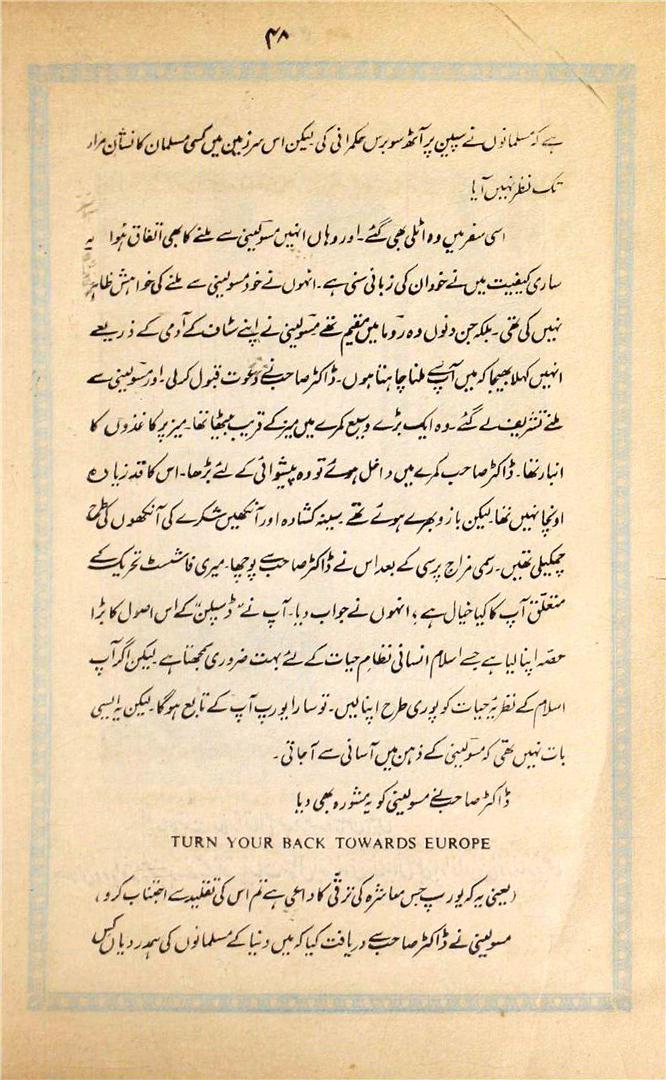 ۴۸
ہے کہ مسلمانوں نے سپین پر آٹھ سو برس حکمرانی کی لیکن اس سرزمین میں کسی مسلمان کا نشانِ مزار
تک نظر نہیں آیا
اسی سفر میں وہ اٹلی بھی گئے۔ اور وہاں انہیں مسولینی سے ملنے کا بھی اتفاق ہوا یہ
ساری کیفیت میں نے خود ان کی زبانی سنی ہے۔ انہوں نے خود مسولینی سے ملنے کی خواہش ظاہر
نہیں کی تھی۔ بلکہ جن دنوں وہ روما میں مقیم تھے مسولینی نے اپنے سٹاف کے آدمی کے ذریعے
انہیں کہلا بھیجا کہ میں آپ سے ملنا چاہتا ہوں۔ ڈاکٹر صاحب نے دعوت قبول کر لی۔ اور مسولینی سے
ملنے تشریف لے گئے۔ وہ ایک بڑے وسیع کمرے میں میز کے قریب بیٹھا تھا۔ میز پر کاغذوں کا
انبار تھا۔ ڈاکٹر صاحب کمرے میں داخل ہوئے تو وہ پیشوائی کے لئے بڑھا۔ اس کا قد زیادہ
اونچا نہیں تھا لیکن بازو بھرے ہوئے تھے سینہ کشادہ اور آنکھیں شکرے کی آنکھوں کی طرح
چمکیلی تھیں۔ رسمی مزاج پرسی کے بعد اس نے ڈاکٹر صاحب سے پوچھا۔ میری فاشسٹ تحریک کے
متعلق آپ کا کیا خیال ہے؟ انہوں نے جواب دیا۔ آپ نے "ڈسپلن" کے اس اصول کا بڑا
حصہ اپنا لیا ہے جسے اسلام انسانی نظامِ حیات کے لئے بہت ضروری سمجھتا ہے لیکن اگر آپ
اسلام کے نظریۂ حیات کو پوری طرح اپنا لیں۔ تو سارا یورپ آپ کے تابع ہوگا۔ لیکن یہ ایسی
بات نہیں تھی کہ مسولینی کے ذہن میں آسانی سے آ جاتی۔
ڈاکٹر صاحب نے مسولینی کو یہ مشورہ بھی دیا
TURN YOUR BACK TOWARDS EUROPE
(یعنی یہ کہ یورپ جس معاشرہ کی ترقی کا داعی ہے تم اس کی تقلید سے اجتناب کرو)
مسولینی نے ڈاکٹر صاحب سے دریافت کیا کہ میں دنیا کے مسلمانوں کی ہمدردیاں کس